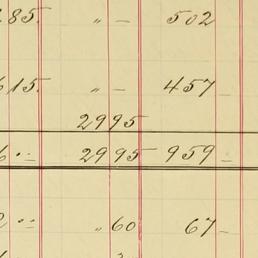 285. " — 502
615. " — 457 —
2995
6 .. 2995 959 —
2 .. " 60 67 —